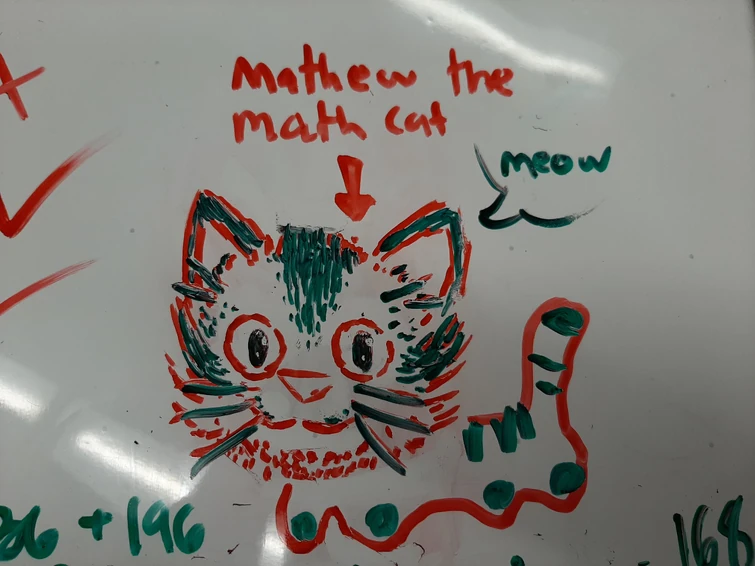 Mathew the
math cat
meow
+ 196
168